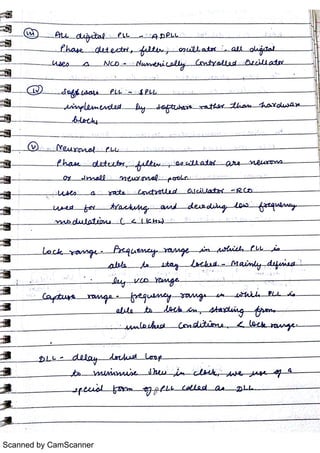 (iii) ALL digital PLL - ADPLL
Phase detector, filter, oscillator - all digital
uses a NCO - Numerically Controlled Oscillator
(iv) Software PLL - SPLL
implemented by software rather than hardware
blocks
(v) Neuronal PLL
Phase detector, filter, oscillator are neurons
or small neuronal pools.
uses a rate controlled oscillator - RCO
used for tracking and decoding low frequency
modulations ( < 1 KHz)
Lock range - Frequency range in which PLL is
able to stay locked - Mainly defined
by VCO range
Capture range - frequency range in which PLL is
able to lock in, starting from
unlocked conditions. < lock range
DLL - delay locked loop
to minimise skew in clock, we use of a
special form of PLL called as DLL.
Scanned by CamScanner